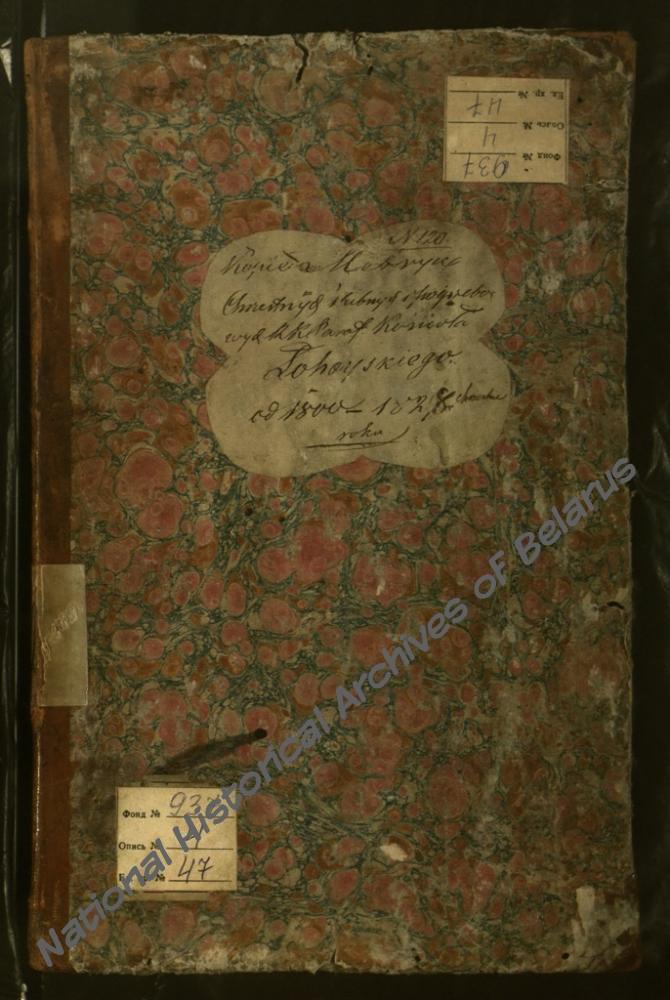 Фонд № 937
Опись № 4
Ед. хр. № 47
N 120.
Kopiia Metryk
Chrestnych ślubnych i pogrzebo
wych R K Paraf Kościoła
Łohoyskiego
od 1800 – 182
roku
Фонд № 937
Опись № 4
Ед. хр. № 47
National Historical Archives of Belarus